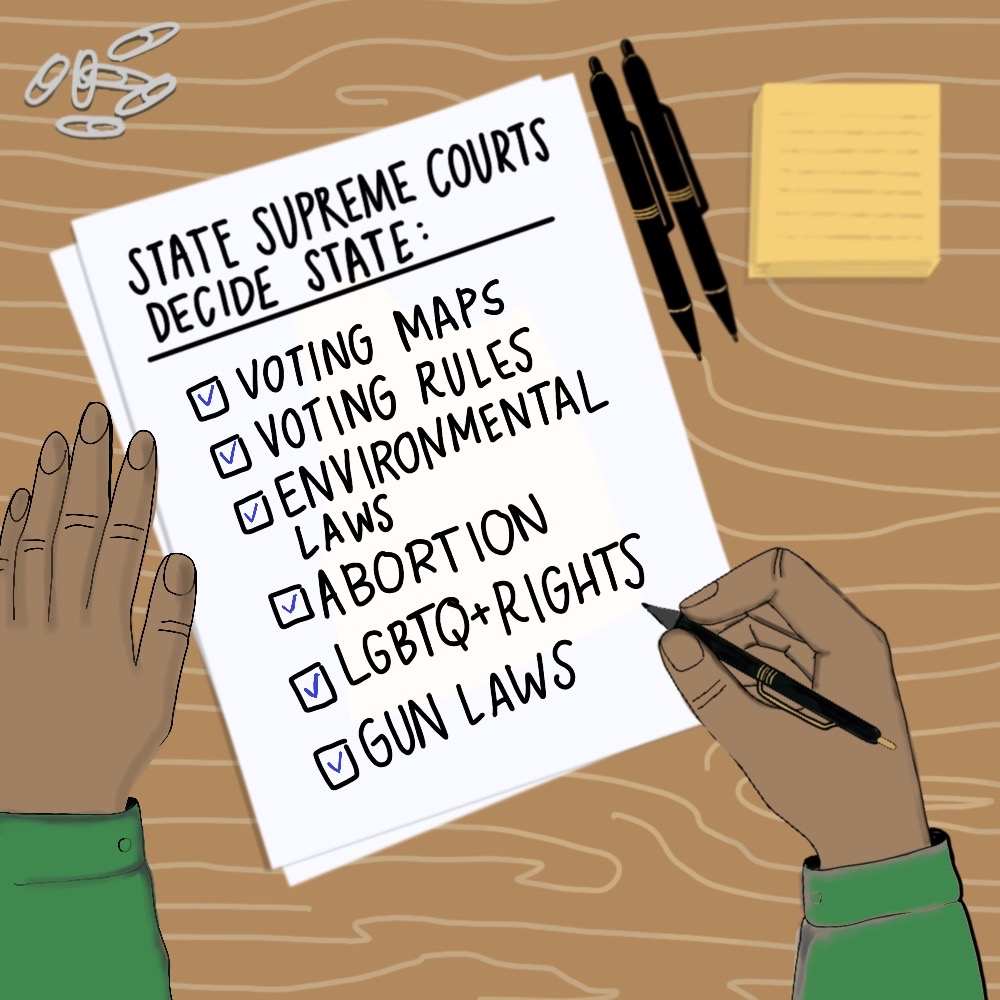 STATE SUPREME COURTS
DECIDE STATE:
VOTING MAPS
VOTING RULES
ENVIRONMENTAL
LAWS
ABORTION
LGBTQ+RIGHTS
GUN LAWS